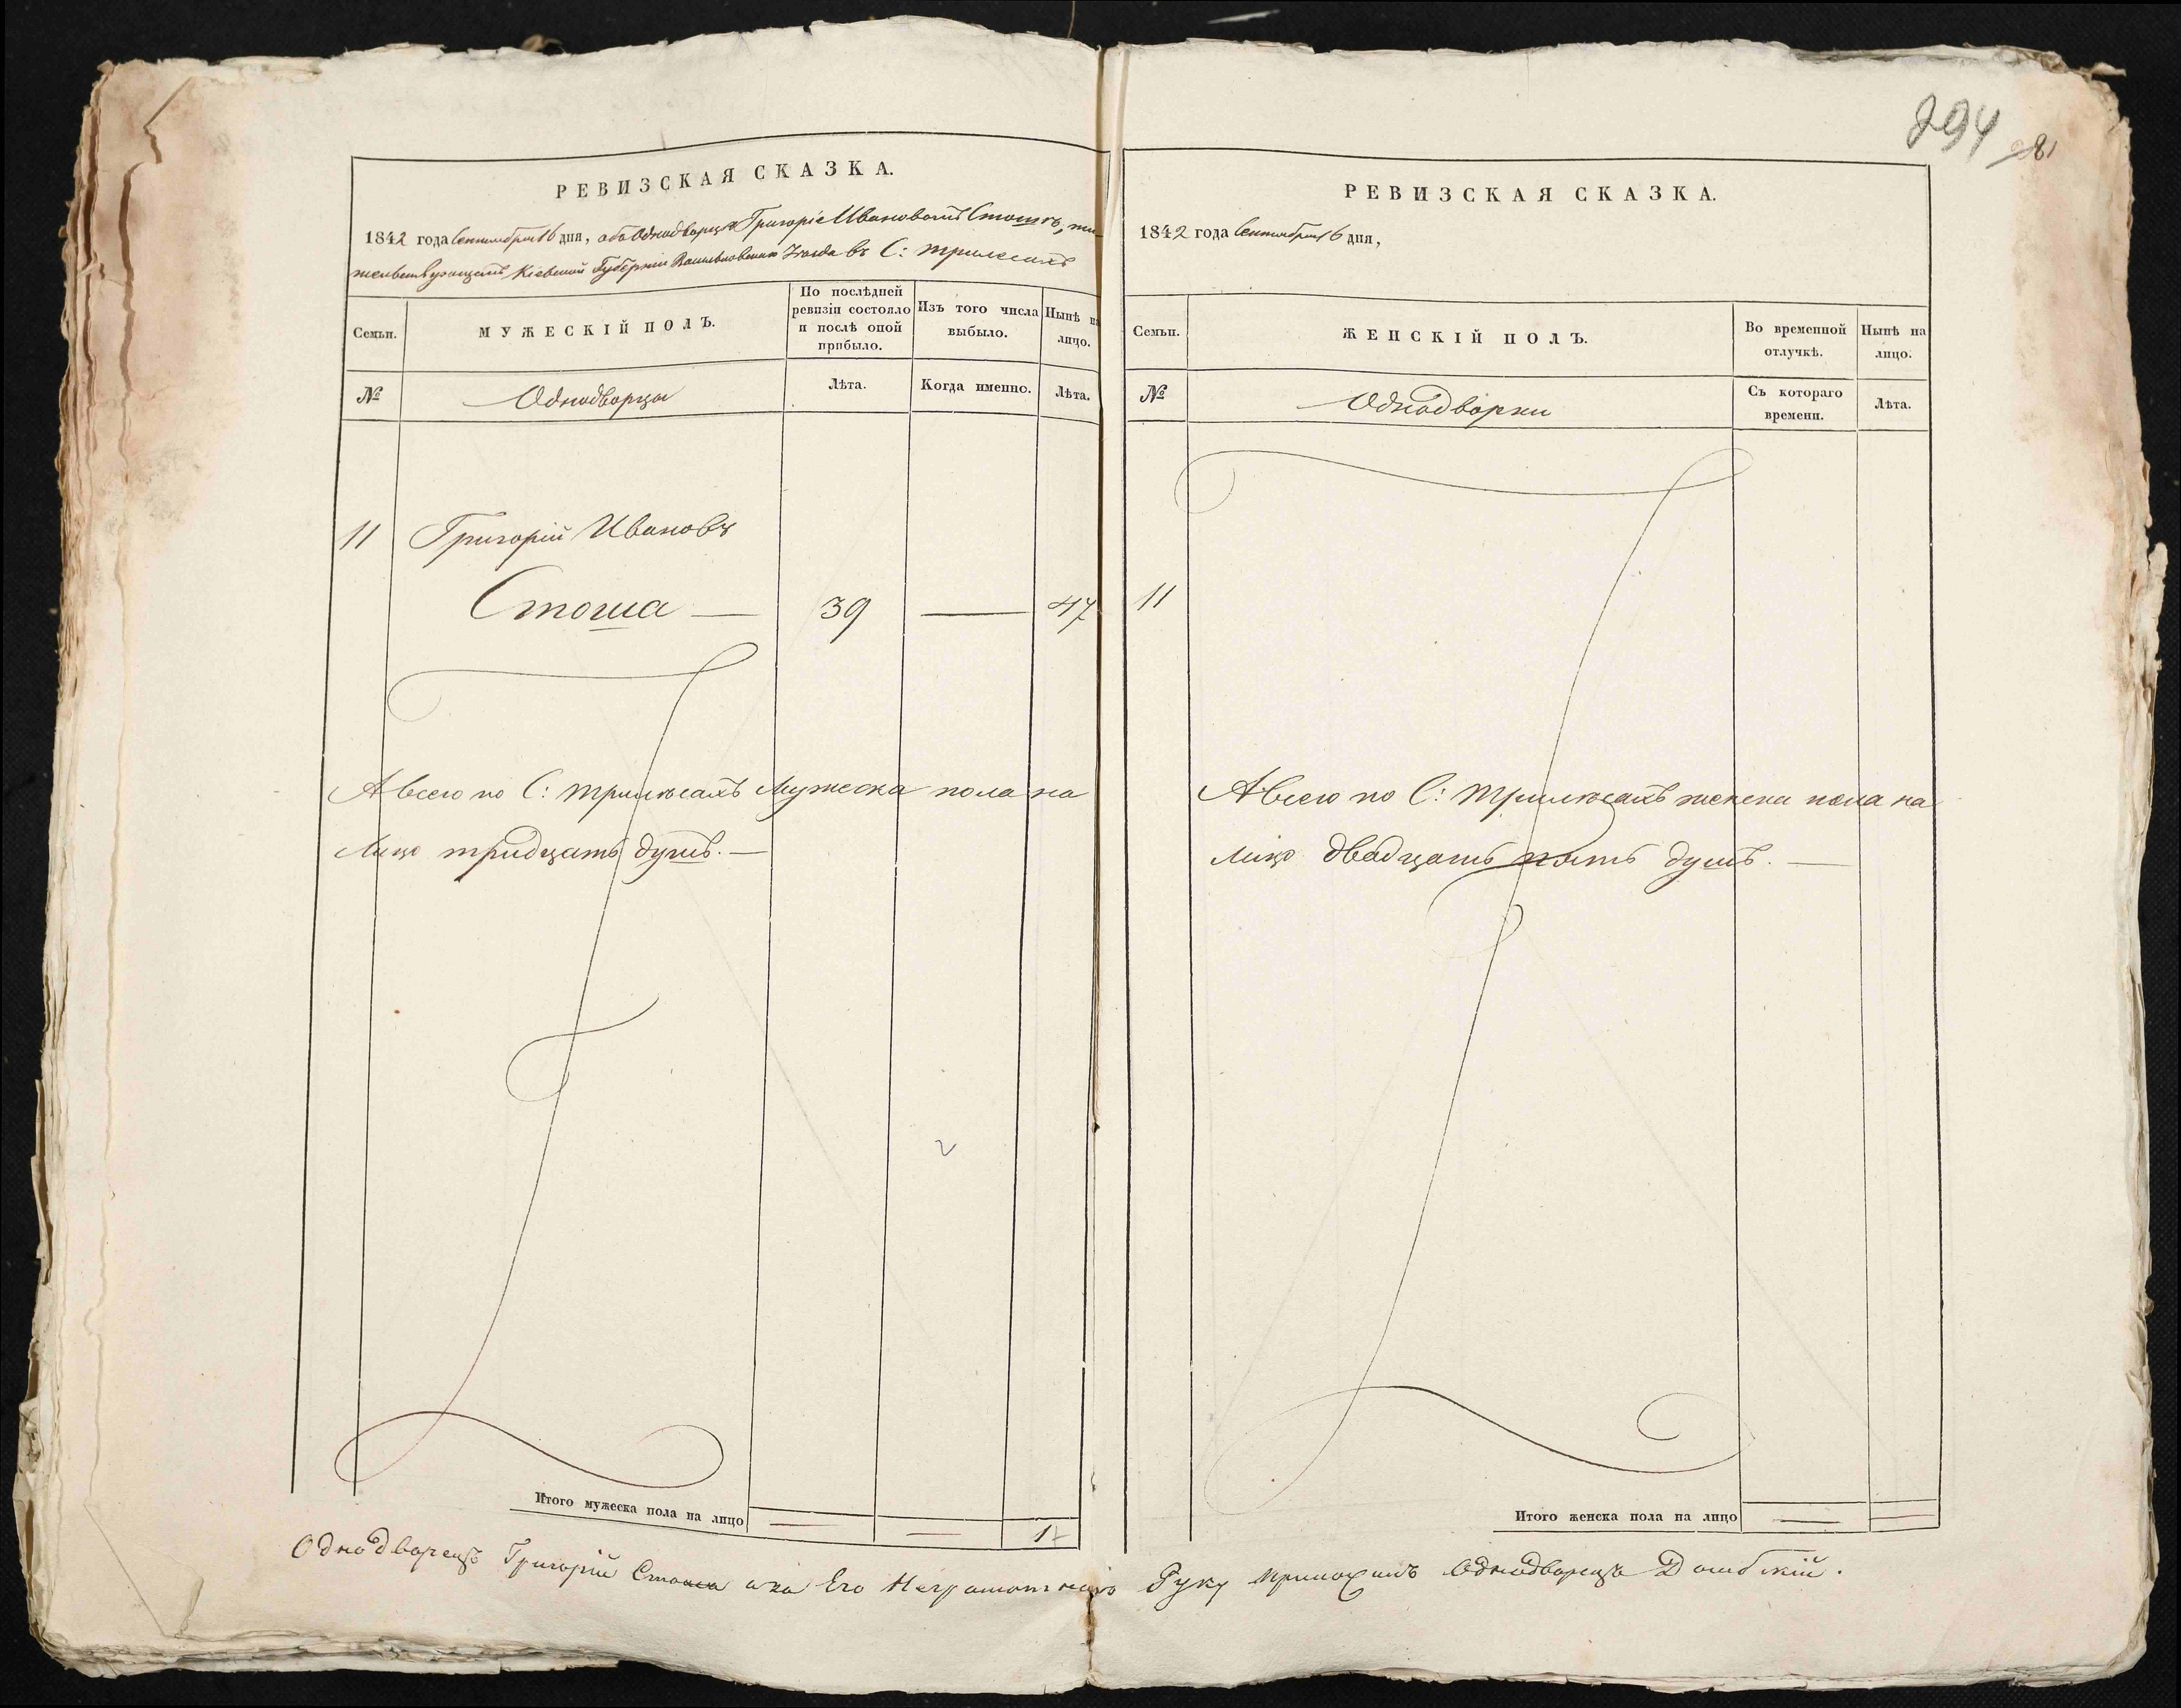 294
281
РЕВИЗСКАЯ СКАЗКА.
1842 года Сентября 16 дня, объ Однодворцѣ Григоріе Ивановомъ Стошѣ, жи-
тельствующемъ Кіевской Губерніи Васильковскаго Уѣзда въ С: Трилесахъ
Семьи.
МУЖЕСКІЙ ПОЛЪ.
По послѣдней ревизіи состояло и послѣ оной прибыло.
Изъ того числа выбыло.
Нынѣ на лицо.
№
Однодворцы
Лѣта.
Когда именно.
Лѣта.
11 Григорій Ивановъ
Стоша — 39 — 47
А всего по С: Трилѣсахъ Мужеска пола на
лицо тридцать душъ. —
Итого мужеска пола на лицо — — 1
РЕВИЗСКАЯ СКАЗКА.
1842 года Сентября 16 дня,
Семьи.
ЖЕНСКІЙ ПОЛЪ.
Во временной отлучкѣ.
Нынѣ на лицо.
№
Однодворки
Съ котораго времени.
Лѣта.
11
А всего по С: Трилѣсахъ женска пола на
лицо двадцать пять душъ. —
Итого женска пола на лицо — —
Однодворецъ Григорій Стоша а за Его Неграмотнаго Руку приложилъ Однодворецъ